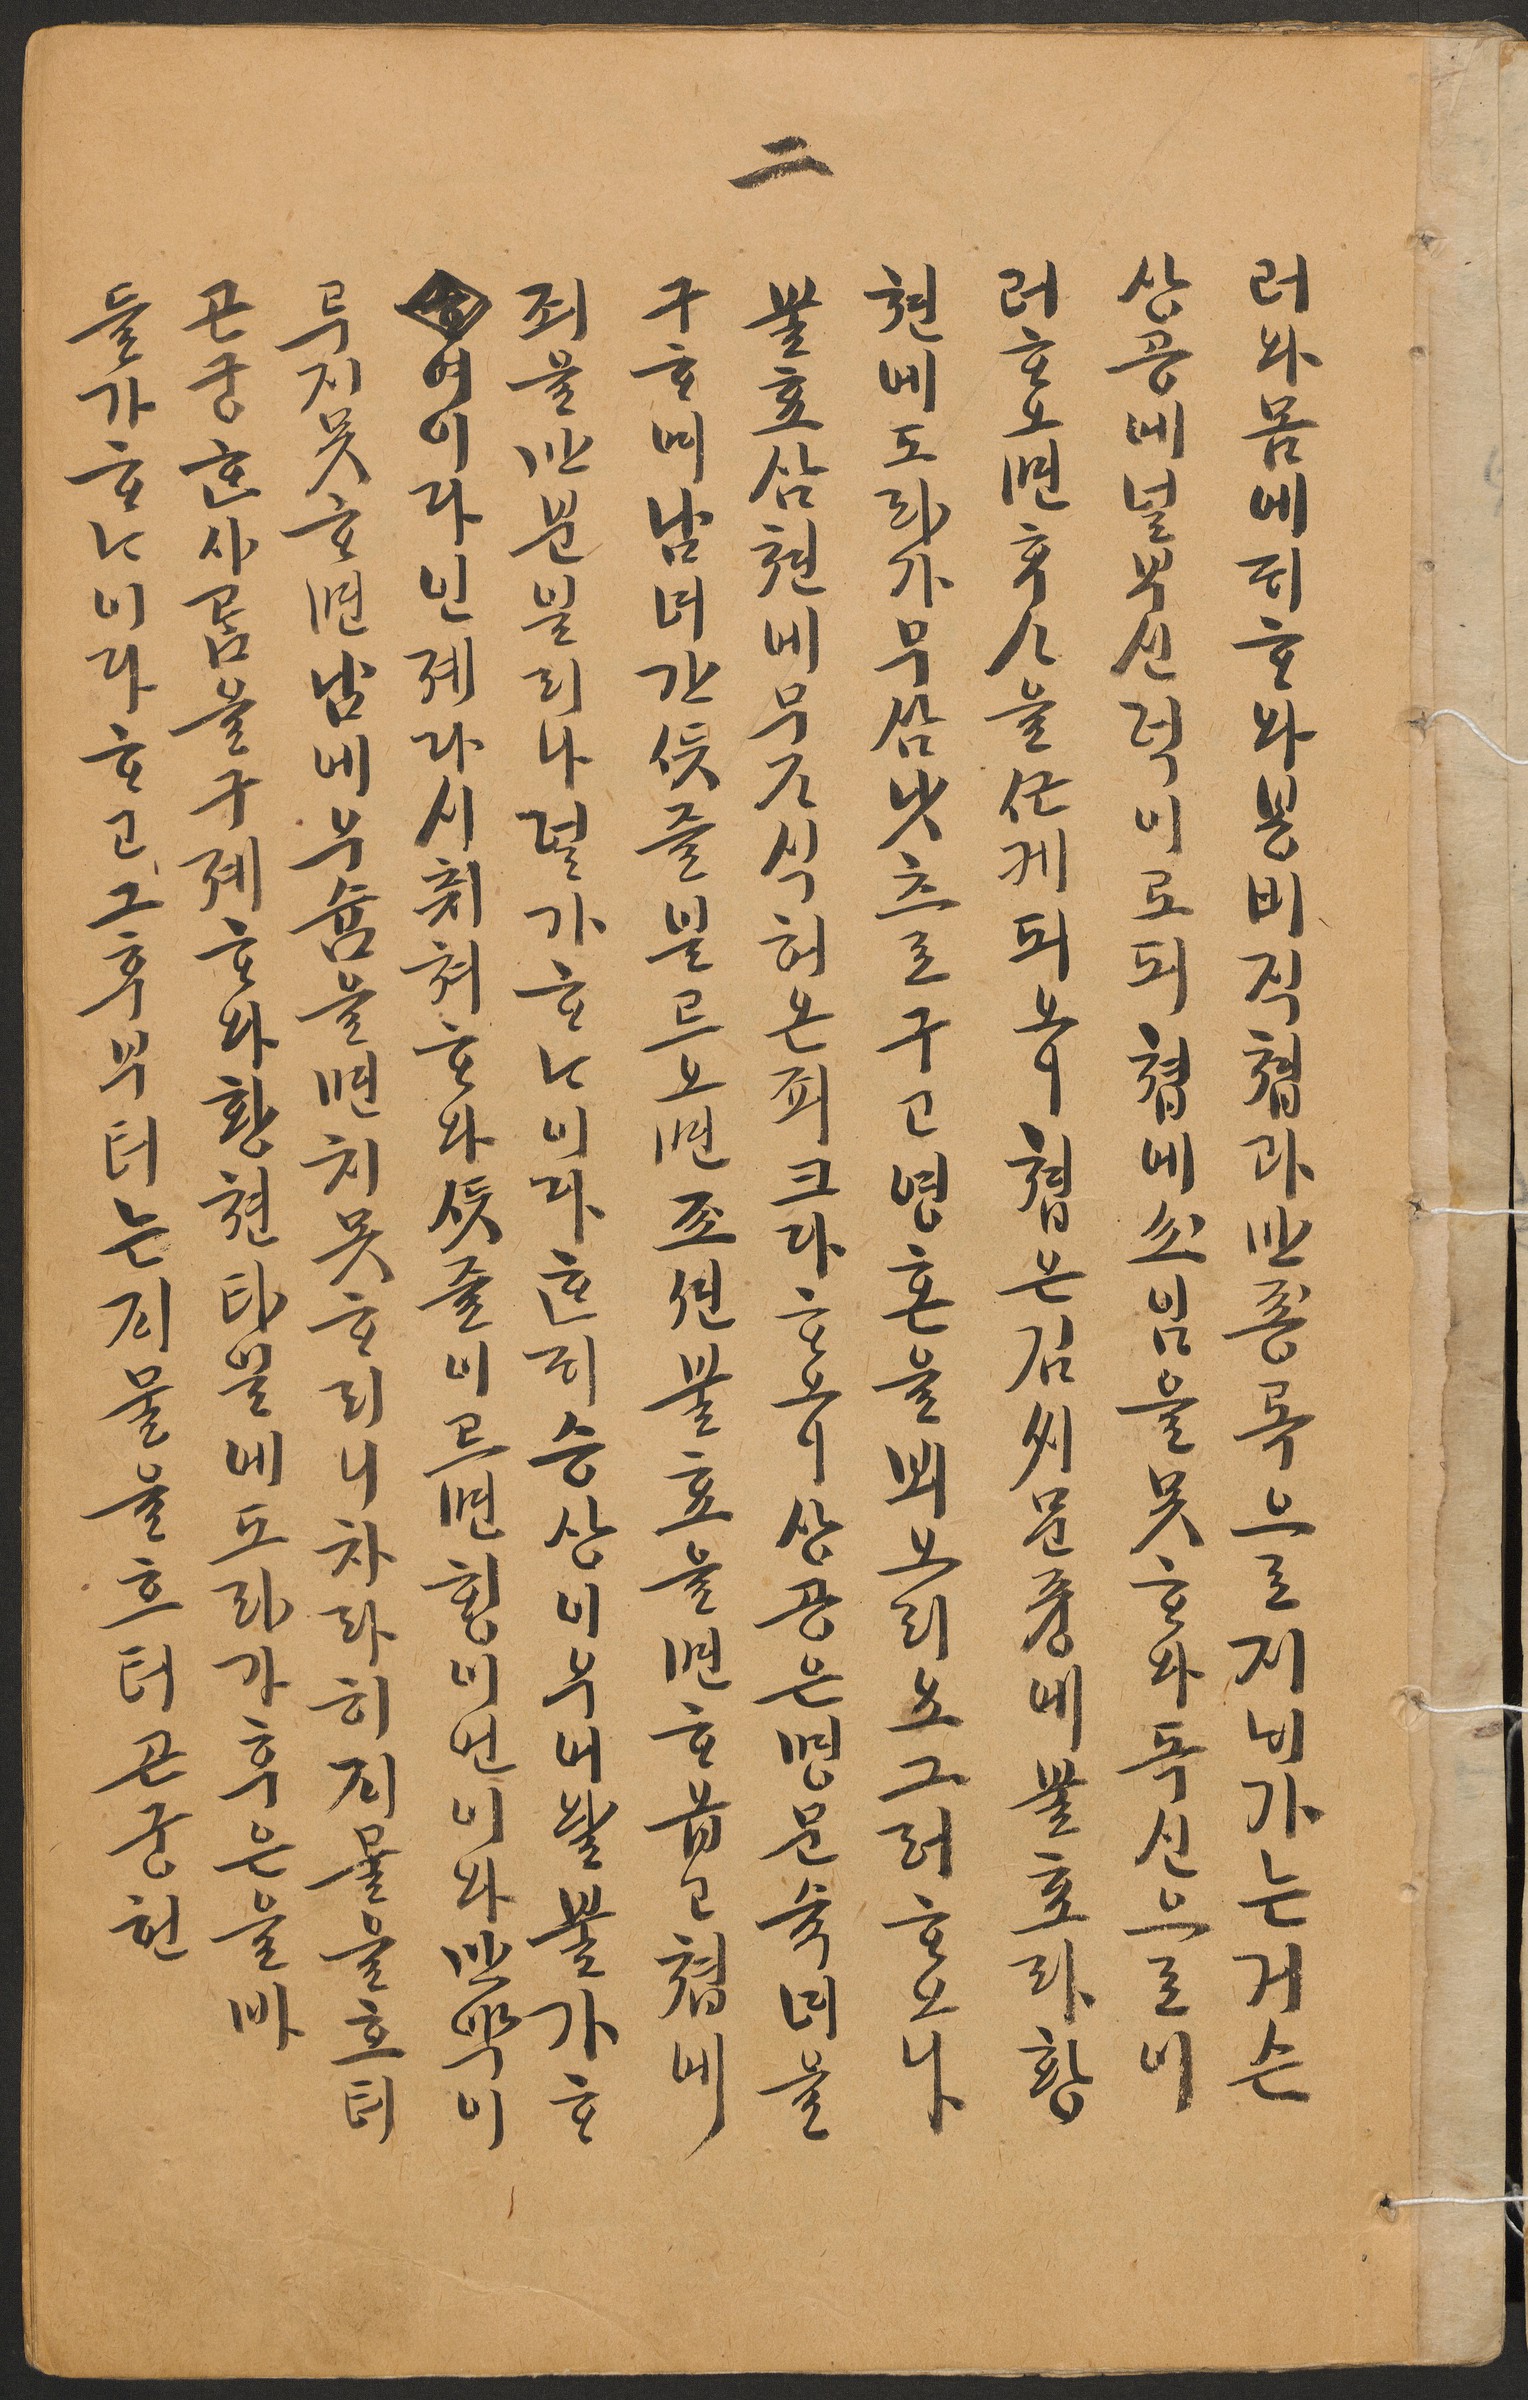 二
러와몸에피ᄒᆞ와봉비직쳡과만종록으로지ᄂᆡ가는거슨
상공에널부신덕이로ᄃᆡ쳡에쇠밈을못ᄒᆞ와독신으로이
러ᄒᆞ오면후ᄉᆞ을ᄭᅳᆫ케되오ᄆᆡ쳡은김씨문즁에불효라황
쳔에도라가무삼낫츠로구고영혼을뵈오리요그러ᄒᆞ오나
불효삼쳔에무ᄌᆞ식허온죄크다ᄒᆞ오ᄆᆡ상공은명문슉녀을
구ᄒᆞ며남녀간ᄭᅴᆺ즐불르오면죠션불효을면ᄒᆞ읍고쳡에
죄을만분물리나덜가ᄒᆞᄂᆞ이다ᄒᆞᆫᄃᆡ승상이부여왈불가ᄒᆞ
여이다인졔라시취쳐ᄒᆞ와ᄭᅴᆺ즐이르면ᄒᆡᆼ이언이와만약이
루지못ᄒᆞ면남에우슴을면치못ᄒᆞ리니차라히ᄌᆡ물을흐터
곤궁ᄒᆞᆫ사ᄅᆞᆷ을구졔ᄒᆞ와황쳔타일에도라가후은을바
들가ᄒᆞᄂᆞ이다ᄒᆞ고그후부터는ᄌᆡ물을흐터곤궁헌